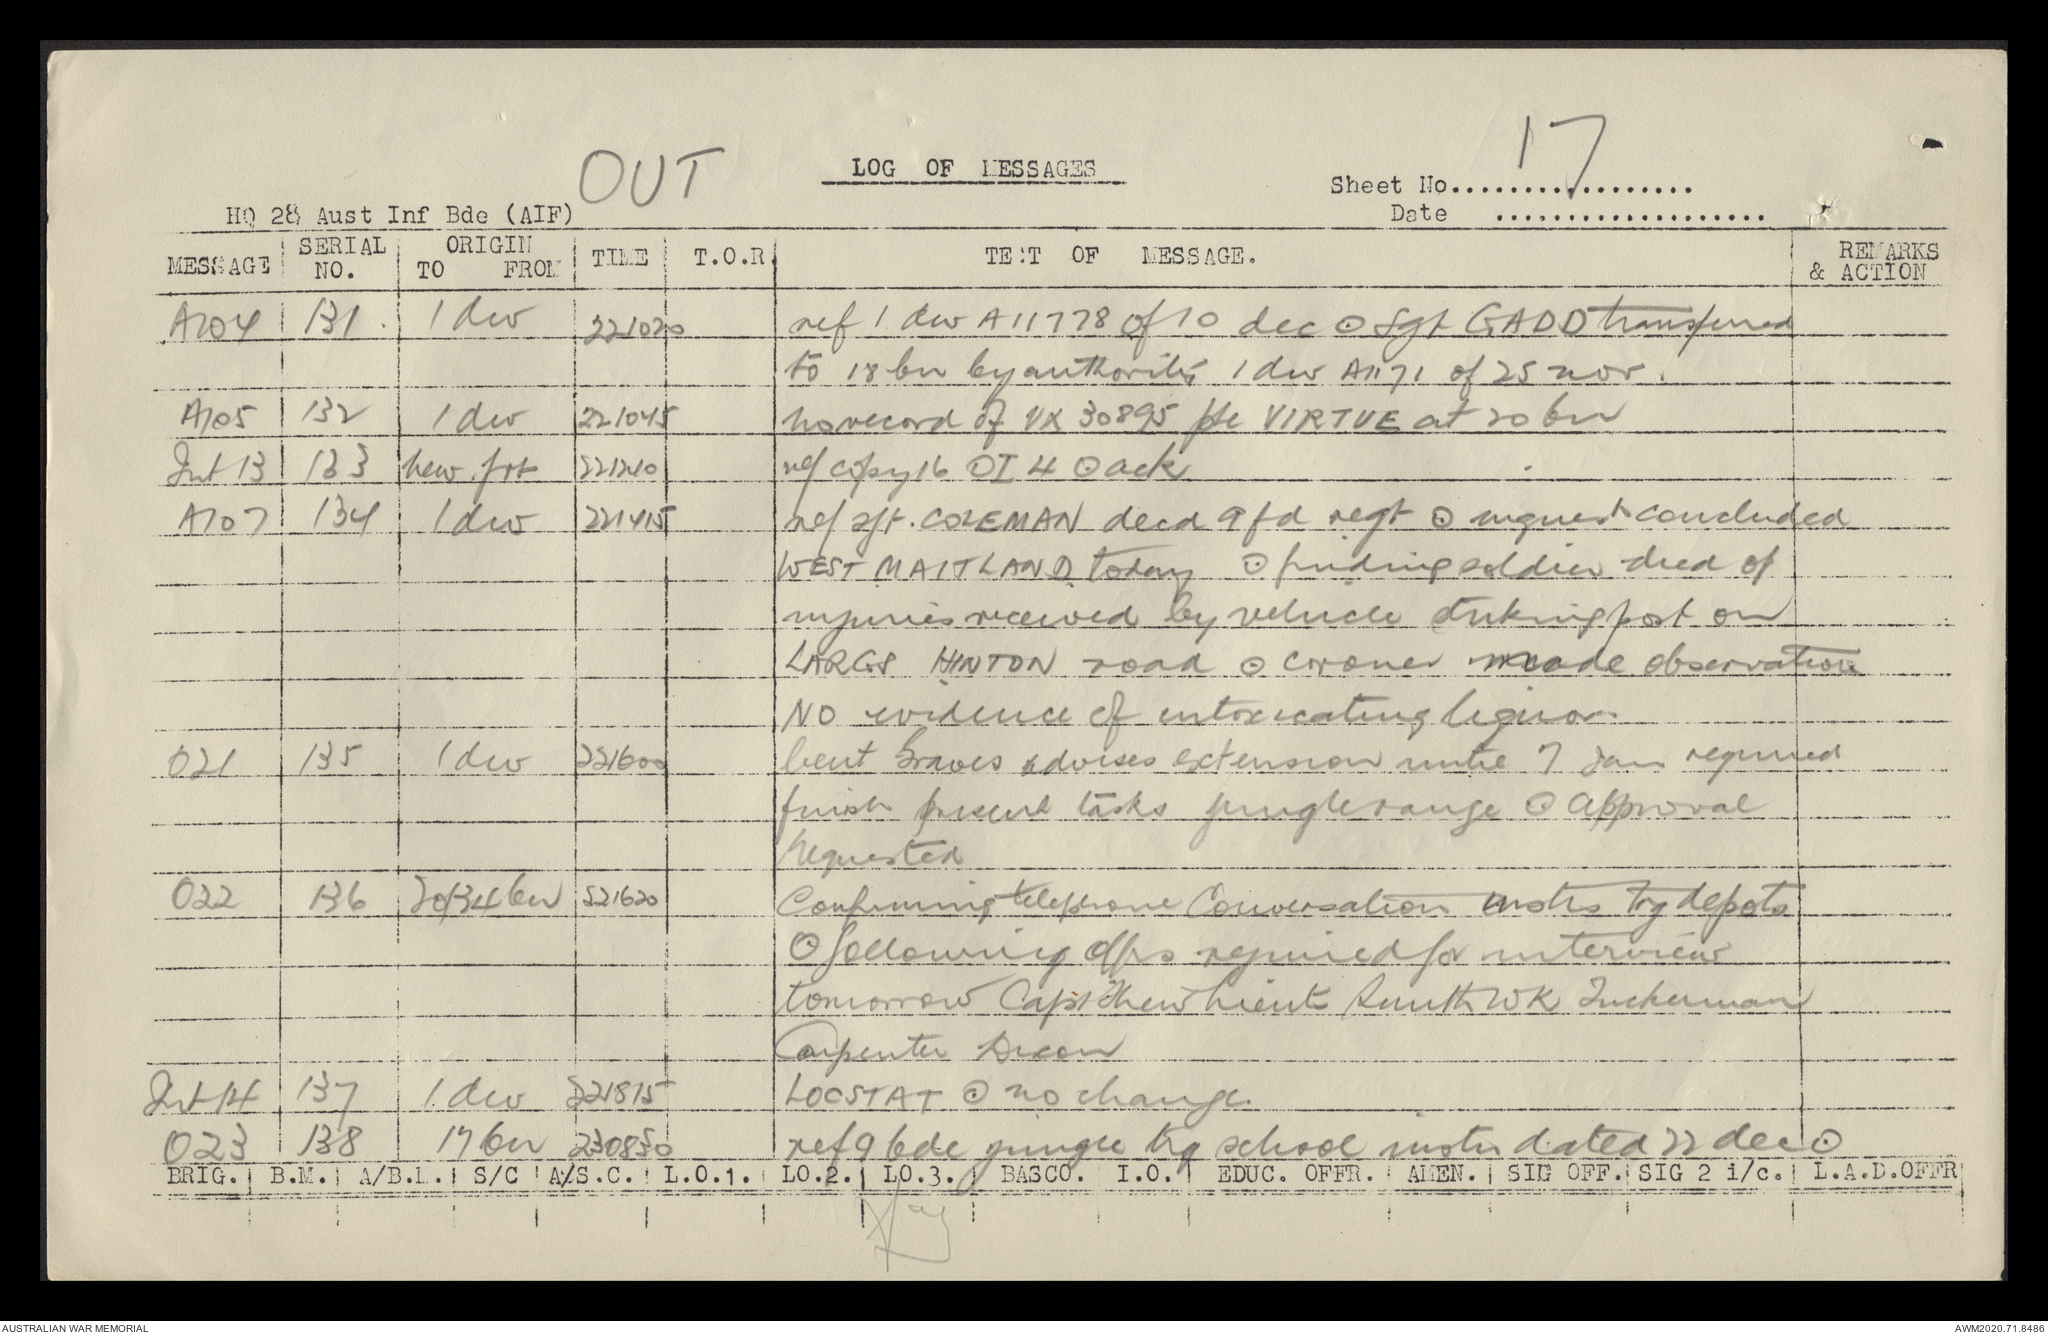 OUT
17
LOG OF MESSAGES
Sheet No.................
HQ 28 Aust Inf Bde (AIF)
Date ...................
MESSAGE SERIAL NO. ORIGIN TO FROM TIME T.O.R. TEXT OF MESSAGE. REMARKS & ACTION
A104 131. 1 div 221020 ref 1 div A11778 of 10 dec ⊙ Sgt GADD transferred
to 18 bn by authority 1 div A1171 of 25 nov.
A105 132 1 div 221045 no record of VX 30895 pte VIRTUE at 20 bn
Int 13 133 new.frt 221210 ref copy 16 OI 4 ⊙ ack
A107 134 1 div 221415 ref sjt. COLEMAN decd 9 fd regt ⊙ inquest concluded
WEST MAITLAND today ⊙ finding soldier died of
injuries received by vehicle striking post on
LARGS HINTON road ⊙ coroner made observation
NO evidence of intoxicating liquor.
021 135 1 div 221600 lieut Graves advises extension until 7 Jan required
finish present tasks jungle range ⊙ approval
requested
022 136 20/34 bn 221620 Confirming telephone Conversation instrs trg depots
⊙ following offrs required for interview
tomorrow Capt Lieuts Smith WK Tuckerman
Carpenter Dixon
Int 14 137 1 div 221815 LOCSTAT ⊙ no change.
023 138 17 bn 230830 ref 9 bde jungle trg school instn dated 22 dec ⊙
BRIG. B.M. A/B.M. S/C A/S.C. L.O.1. LO.2. LO.3. BASCO. I.O. EDUC. OFFR. AMEN. SIG OFF. SIG 2 i/c. L.A.D.OFFR
AUSTRALIAN WAR MEMORIAL
AWM2020.71.8486